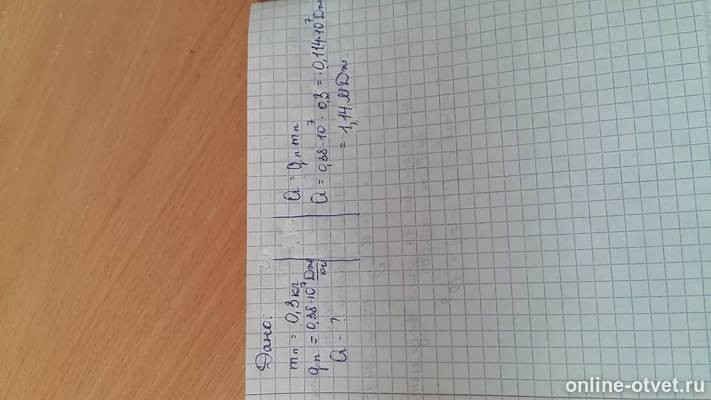 Дано:
mₙ = 0,3 кг
qₙ = 0,38·10⁷ Дж/кг
Q - ?
Q = qₙ mₙ
Q = 0,38·10⁷ · 0,3 = 0,114·10⁷ Дж
= 1,14 МДж
online-otvet.ru